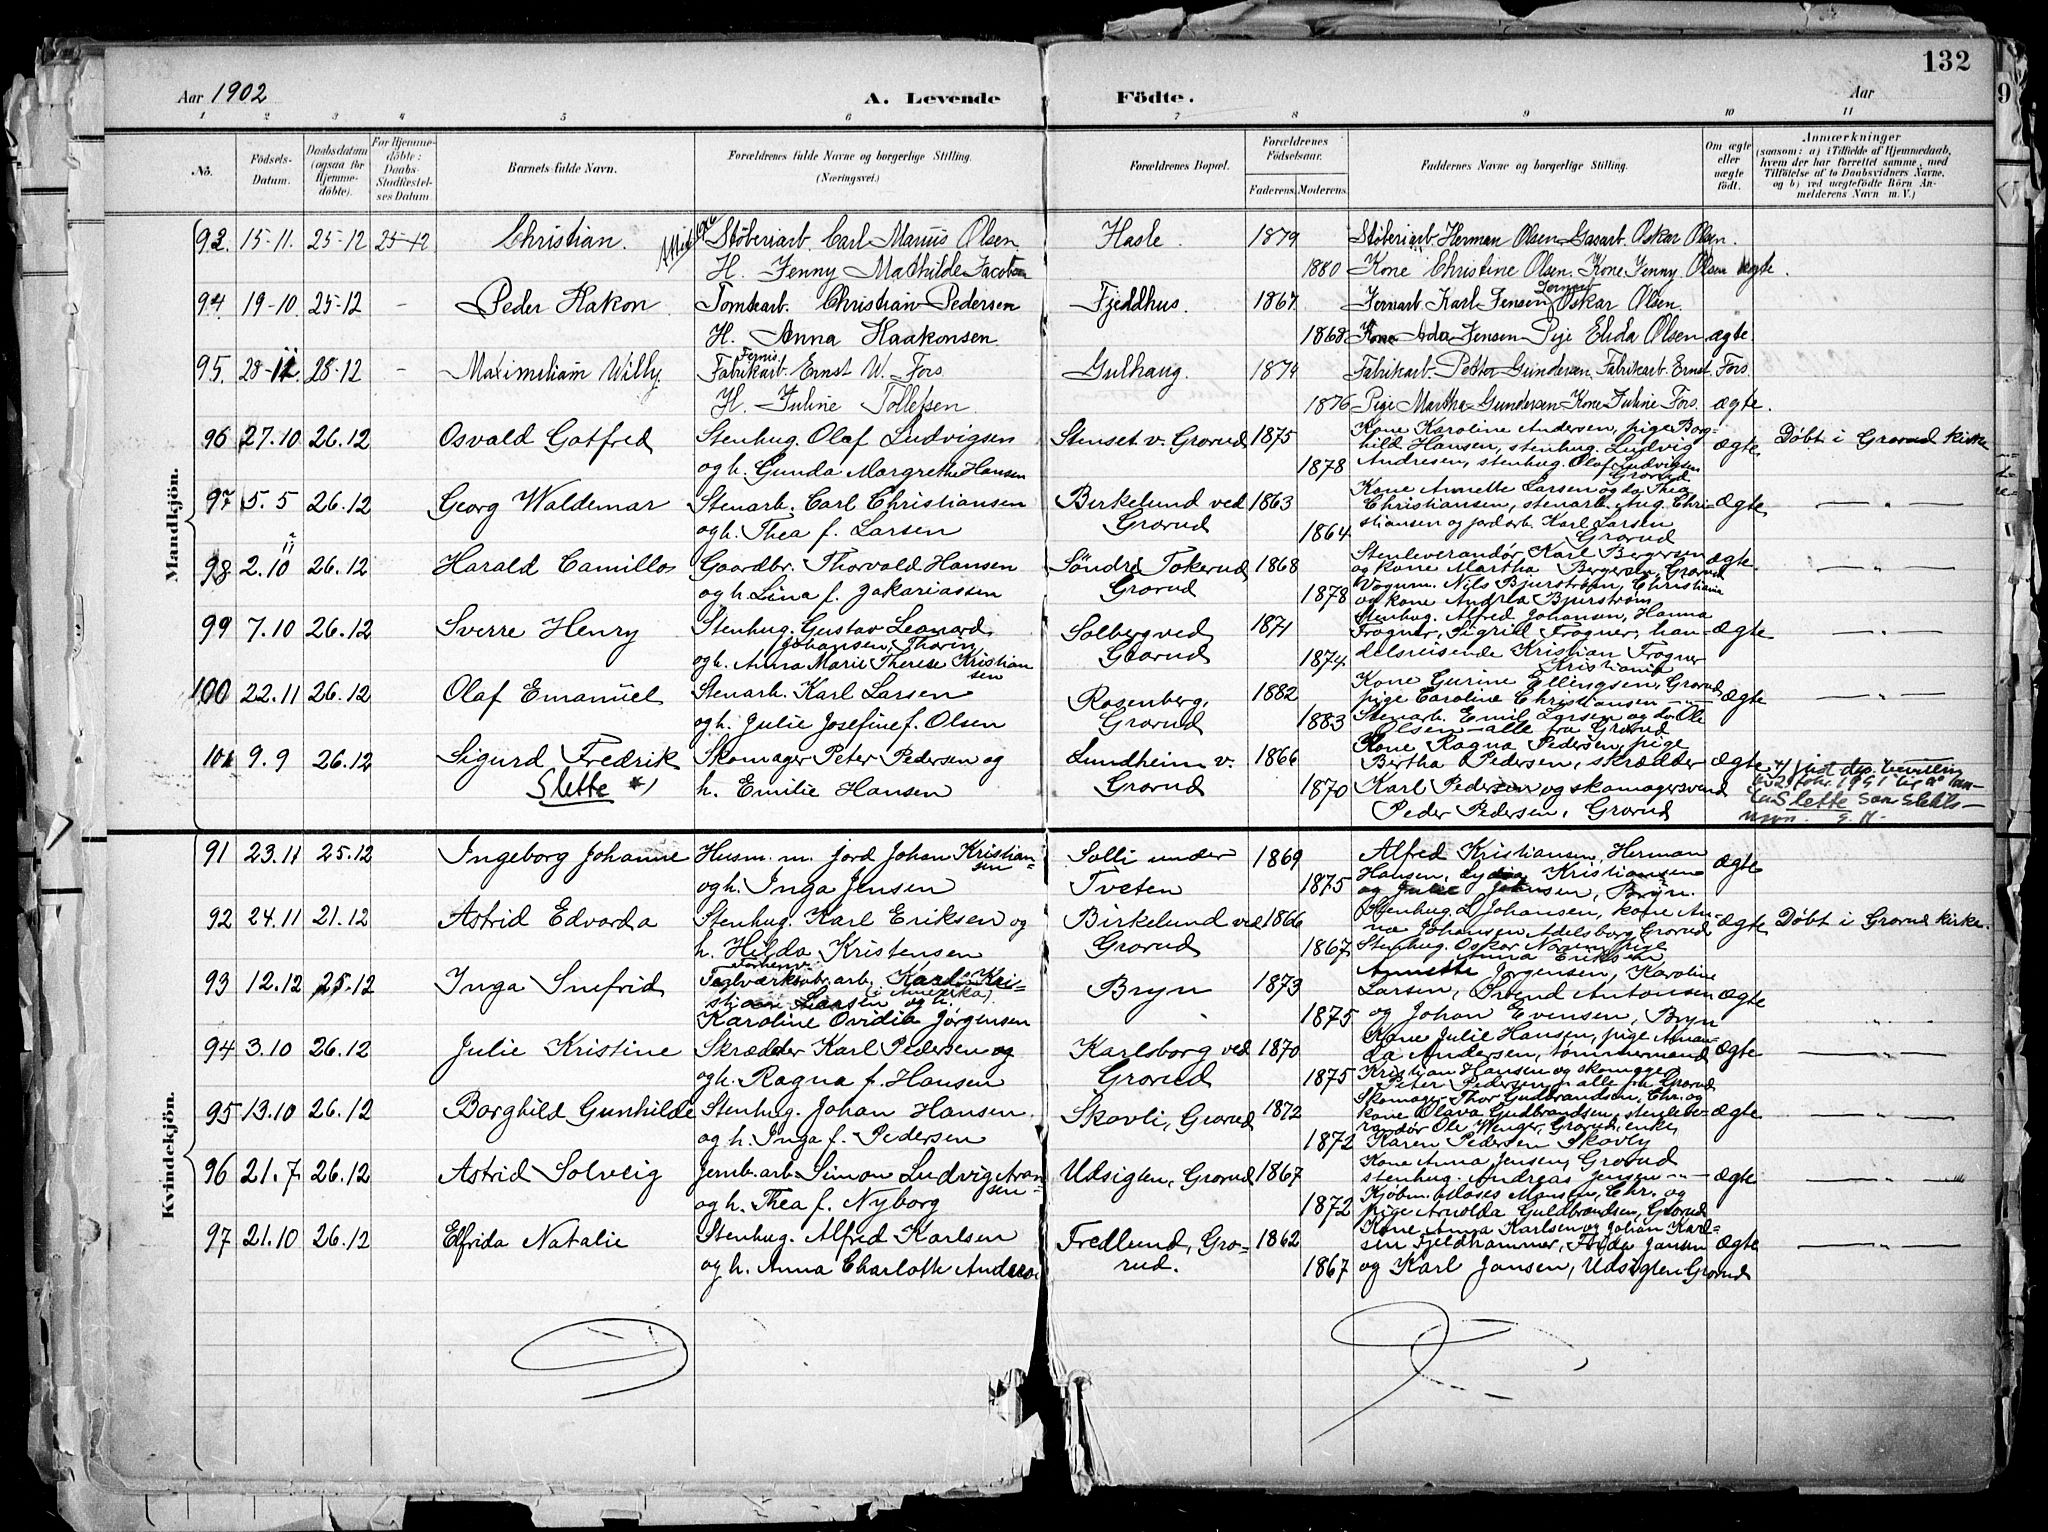 132
Aar 1902
A. Levende Födte.
Aar
1 2 3 4 5 6 7 8 9 10 11
No.
Födsels-Datum.
Daabsdatum (ogsaa for Hjemmedöbte).
For Hjemmedöbte: Daabs-Stadfæstelses Datum.
Barnets fulde Navn.
Forældrenes fulde Navne og borgerlige Stilling.
(Næringsvei.)
Forældrenes Bopæl.
Forældrenes Födselsaar.
Faderens. Moderens.
Faddernes Navne og borgerlige Stilling.
Om ægte eller uægte födt.
Anmærkninger
(saasom: a) i Tilfælde af Hjemmedaab, hvem der har forrettet samme, med Tilföielse af to Daabsvidners Navne, og b) ved uægtefödte Börn Anmelderens Navn m. V.)
Mandkjön.
93. 15-11. 25-12 25-12 Christian. Støberiarb. Carl Marius Olsen Hasle. 1879 Støberiarb. Herman Olsen Gasarb. Oskar Olsen.
H. Jenny Mathilde Jacobsen 1880 Kone Christine Olsen. Kone Jenny Olsen ægte.
94. 19-10 25-12 - Peder Hakon Tomtearb. Christian Pedersen Fjeldhus. 1867 Jernarb. Karl Jensen Oskar Olsen.
H. Anna Haakonsen 1868 Kone Ada Jensen Pige Elida Olsen ægte.
95. 28-11 28-12 - Maximiliam Willy. Fabrikarb. Ernst W. Fors Gulhaug. 1874 Fabrikarb. Petter Gundersen Fabrikarb. Ernst Fors.
H. Juline Tollefsen. 1876 Pige Martha Gundersen Kone Juline Fors. ægte.
96 27.10 26.12 Osvald Gotfred Stenhug. Olaf Ludvigsen Stenset v. Grorud 1875 Kone Karoline Andersen, pige Borghild Hansen, stenhug. Ludvig ægte Döbt i Grorud kirke
og h. Gunda Margrethe Hansen 1878 Andresen, stenhug. Olaf Ludvigsen Grorud
97 5.5 26.12 Georg Waldemar Stenarb. Carl Christiansen Birkelund ved Grorud 1863 Kone Annette Larsen og do Thea Christiansen, stenarb. Aug. Chri- ægte — " —
og h. Thea f. Larsen 1864 stiansen og jordarb. Karl Larsen Grorud
98 2.10 26.12 Harald Camillos Gaardbr. Thorvald Hansen Söndre Tokerud Grorud 1868 Stenleverandör Karl Bergersen og kone Martha Bergersen, Grorud ægte — " —
og h. Lina f. Zakariassen 1878 Vognm. Nils Bjurström, Christiania og kone Andrea Bjurström
99 7.10 26.12 Sverre Henry Stenhug. Gustav Leonard Johansen Thorin Solberg ved Grorud 1871 Stenhug. Alfred Johansen, Hanna Frogner, Sigrid Frogner, han- ægte — " —
og h. Anna Marie Therese Kristiansen 1874 delsreisende Kristian Frogner Kristiania
100 22.11 26.12 Olaf Emanuel Stenarb. Karl Larsen Rosenberg, Grorud 1882 Kone Gurine Ellingsen, Grorud pige Caroline Christiansen — " — ægte — " —
og h. Julie Josefine f. Olsen 1883 Stenarb. Emil Larsen og do Ole Olsen - alle fra Grorud
101 9.9 26.12 Sigurd Fredrik Skomager Peter Pedersen og Lundheim v. Grorud 1866 Kone Ragna Pedersen, pige Bertha Pedersen, skrædder ægte
Slette *) h. Emilie Hansen 1870 Karl Pedersen og skomagersvend Peder Pedersen, Grorud
Slette som slekts-
navn.
Kvindekjön.
91 23.11 25.12 Ingeborg Johanne Husm. m. jord Johan Kristiansen Solli under Tveten 1869 Alfred Kristiansen, Herman ægte
og h. Inga Jensen 1875 Hansen, Lydia Kristiansen og Julie Johansen, Bryn.
92 24.11 21.12 Astrid Edvarda Stenhug. Karl Eriksen og Birkelund ved Grorud 1866 Stenhug. L. Johansen, kone Anna Johansen Adelsborg Grorud ægte Döbt i Grorud kirke.
h. Hilda Kristensen 1867 Stenhug. Oskar Noren, pige Anna Eriksen
93 12.12 25.12 Inga Snefrid Teglværksarb. Karl Kristian Larsen (i Amerika) og h. Bryn 1873 Annette Jørgensen, Karoline Larsen, Svend Antonsen ægte
Karoline Ovidia Jörgensen 1875 og Johan Evensen, Bryn
94 3.10 26.12 Julie Kristine Skrædder Karl Pedersen og Karlsborg ved Grorud 1870 Kone Julie Hansen, pige Amanda Andersen, tömmermand ægte — " —
og h. Ragna f. Hansen 1875 Kristian Hansen og skomager Peter Pedersen, alle fra Grorud
95 13.10 26.12 Borghild Gunhilde Stenhug. Johan Hansen Skovli, Grorud 1872 Skomager Thor Gudbrandsen, Chr. og kone Olava Gudbrandsen, stenleve- ægte — " —
og h. Inga f. Pedersen 1872 randör Ole Wenger, Grorud, enke Karen Pedersen Skovly
96 21.7 26.12 Astrid Solveig Jernb. arb. Simon Ludvig Aronsen Udsigten, Grorud 1867 Kone Anna Jensen, Grorud stenhug. Andreas Jensen — " — ægte — " —
og h. Thea f. Nyborg 1872 Kjöbm. Moses Monsen, Chr. og pige Arnolda Guldbrandsen, Grorud
97 21.10 26.12 Elfrida Natalie Stenhug. Alfred Karlsen Fredlund, Grorud. 1862 Kone Anna Karlsen og Johan Karlsen Fjeldhammer, Frida Jansen ægte — " —
og h. Anna Charlotte Andersen 1867 og Karl Jansen, Udsigten Grorud